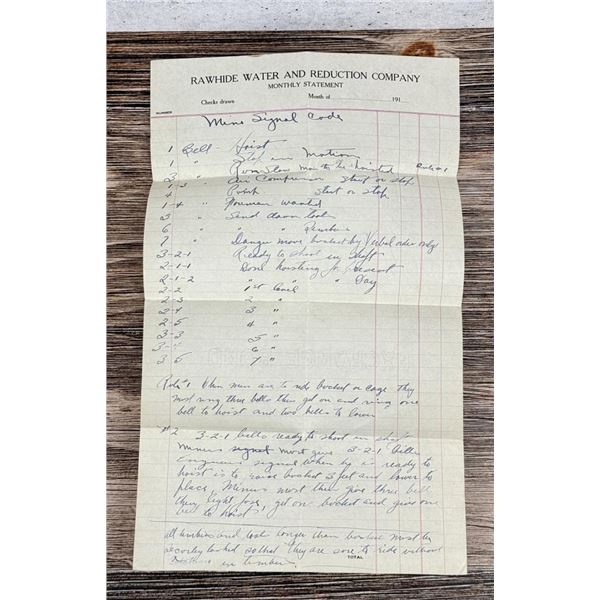 RAWHIDE WATER AND REDUCTION COMPANY
MONTHLY STATEMENT
Checks drawn Month of 191
NUMBER
Mine Signal Code
1 Bell - Hoist
1 " Stop in Motion
3 " Run Slow Men to be hoisted Rule #1
1-3 " Air Compressor Start or stop
4 " Start or stop
1-4 " wanted
5 " Send down tools
6 " " " timbers
7 " Danger move bucket by Verbal order only
3-2-1 Ready to shoot in shaft
2-1-1 Done hoisting for present
2-1-2 " " " Day
2-2 1st Level
2-3 2 "
2-4 3 "
2-5 4 "
3-3 5 "
3-4 6 "
3-5 7 "
Rule #1 When men are to ride bucket or cage they
must ring three bells then get on and ring one
bell to hoist and two bells to lower
#2 3-2-1 bells ready to shoot in shaft
Miners signal must give 3-2-1 Bells
Engineers signal when he is ready to
hoist is to raise bucket 3 feet and lower to
place, Miners must then give three bells
then light fuse, get on bucket and give one
bell to hoist
all timbers and tools longer than bucket must be
securely lashed so that they are sure to ride without
in timbers.
TOTAL